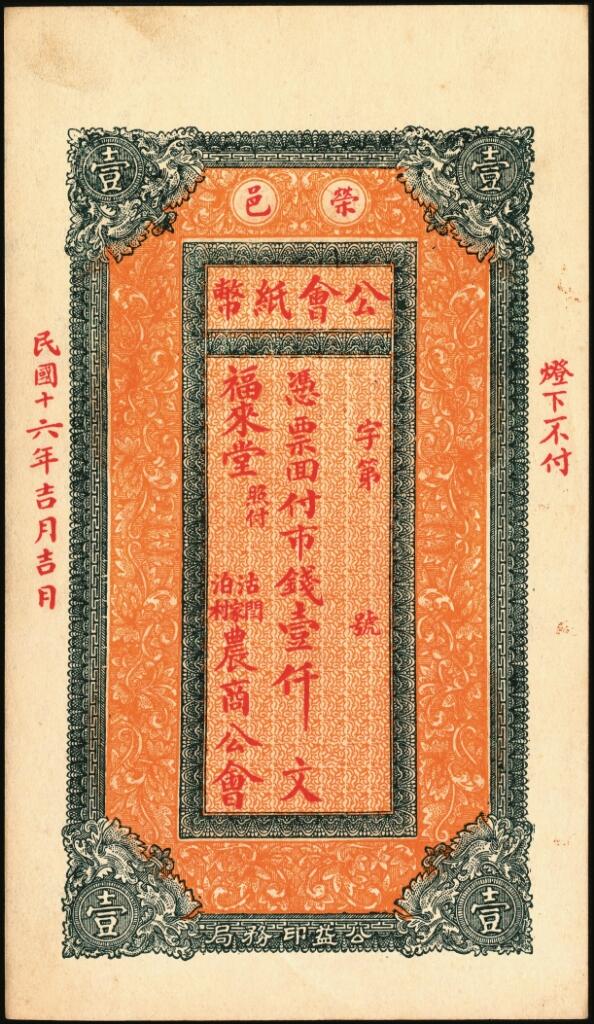 壹
壹
榮邑
公會紙幣
燈下不付
字第 號
憑票面付市錢壹仟文
福來堂
照付
農商公會
民國十六年吉月吉日
壹
壹
公益印務局